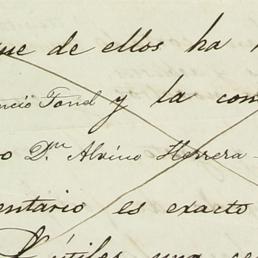 que de ellos ha
Fond y la com
o Dn Alvino Herrera
entario es exacto
útiles una